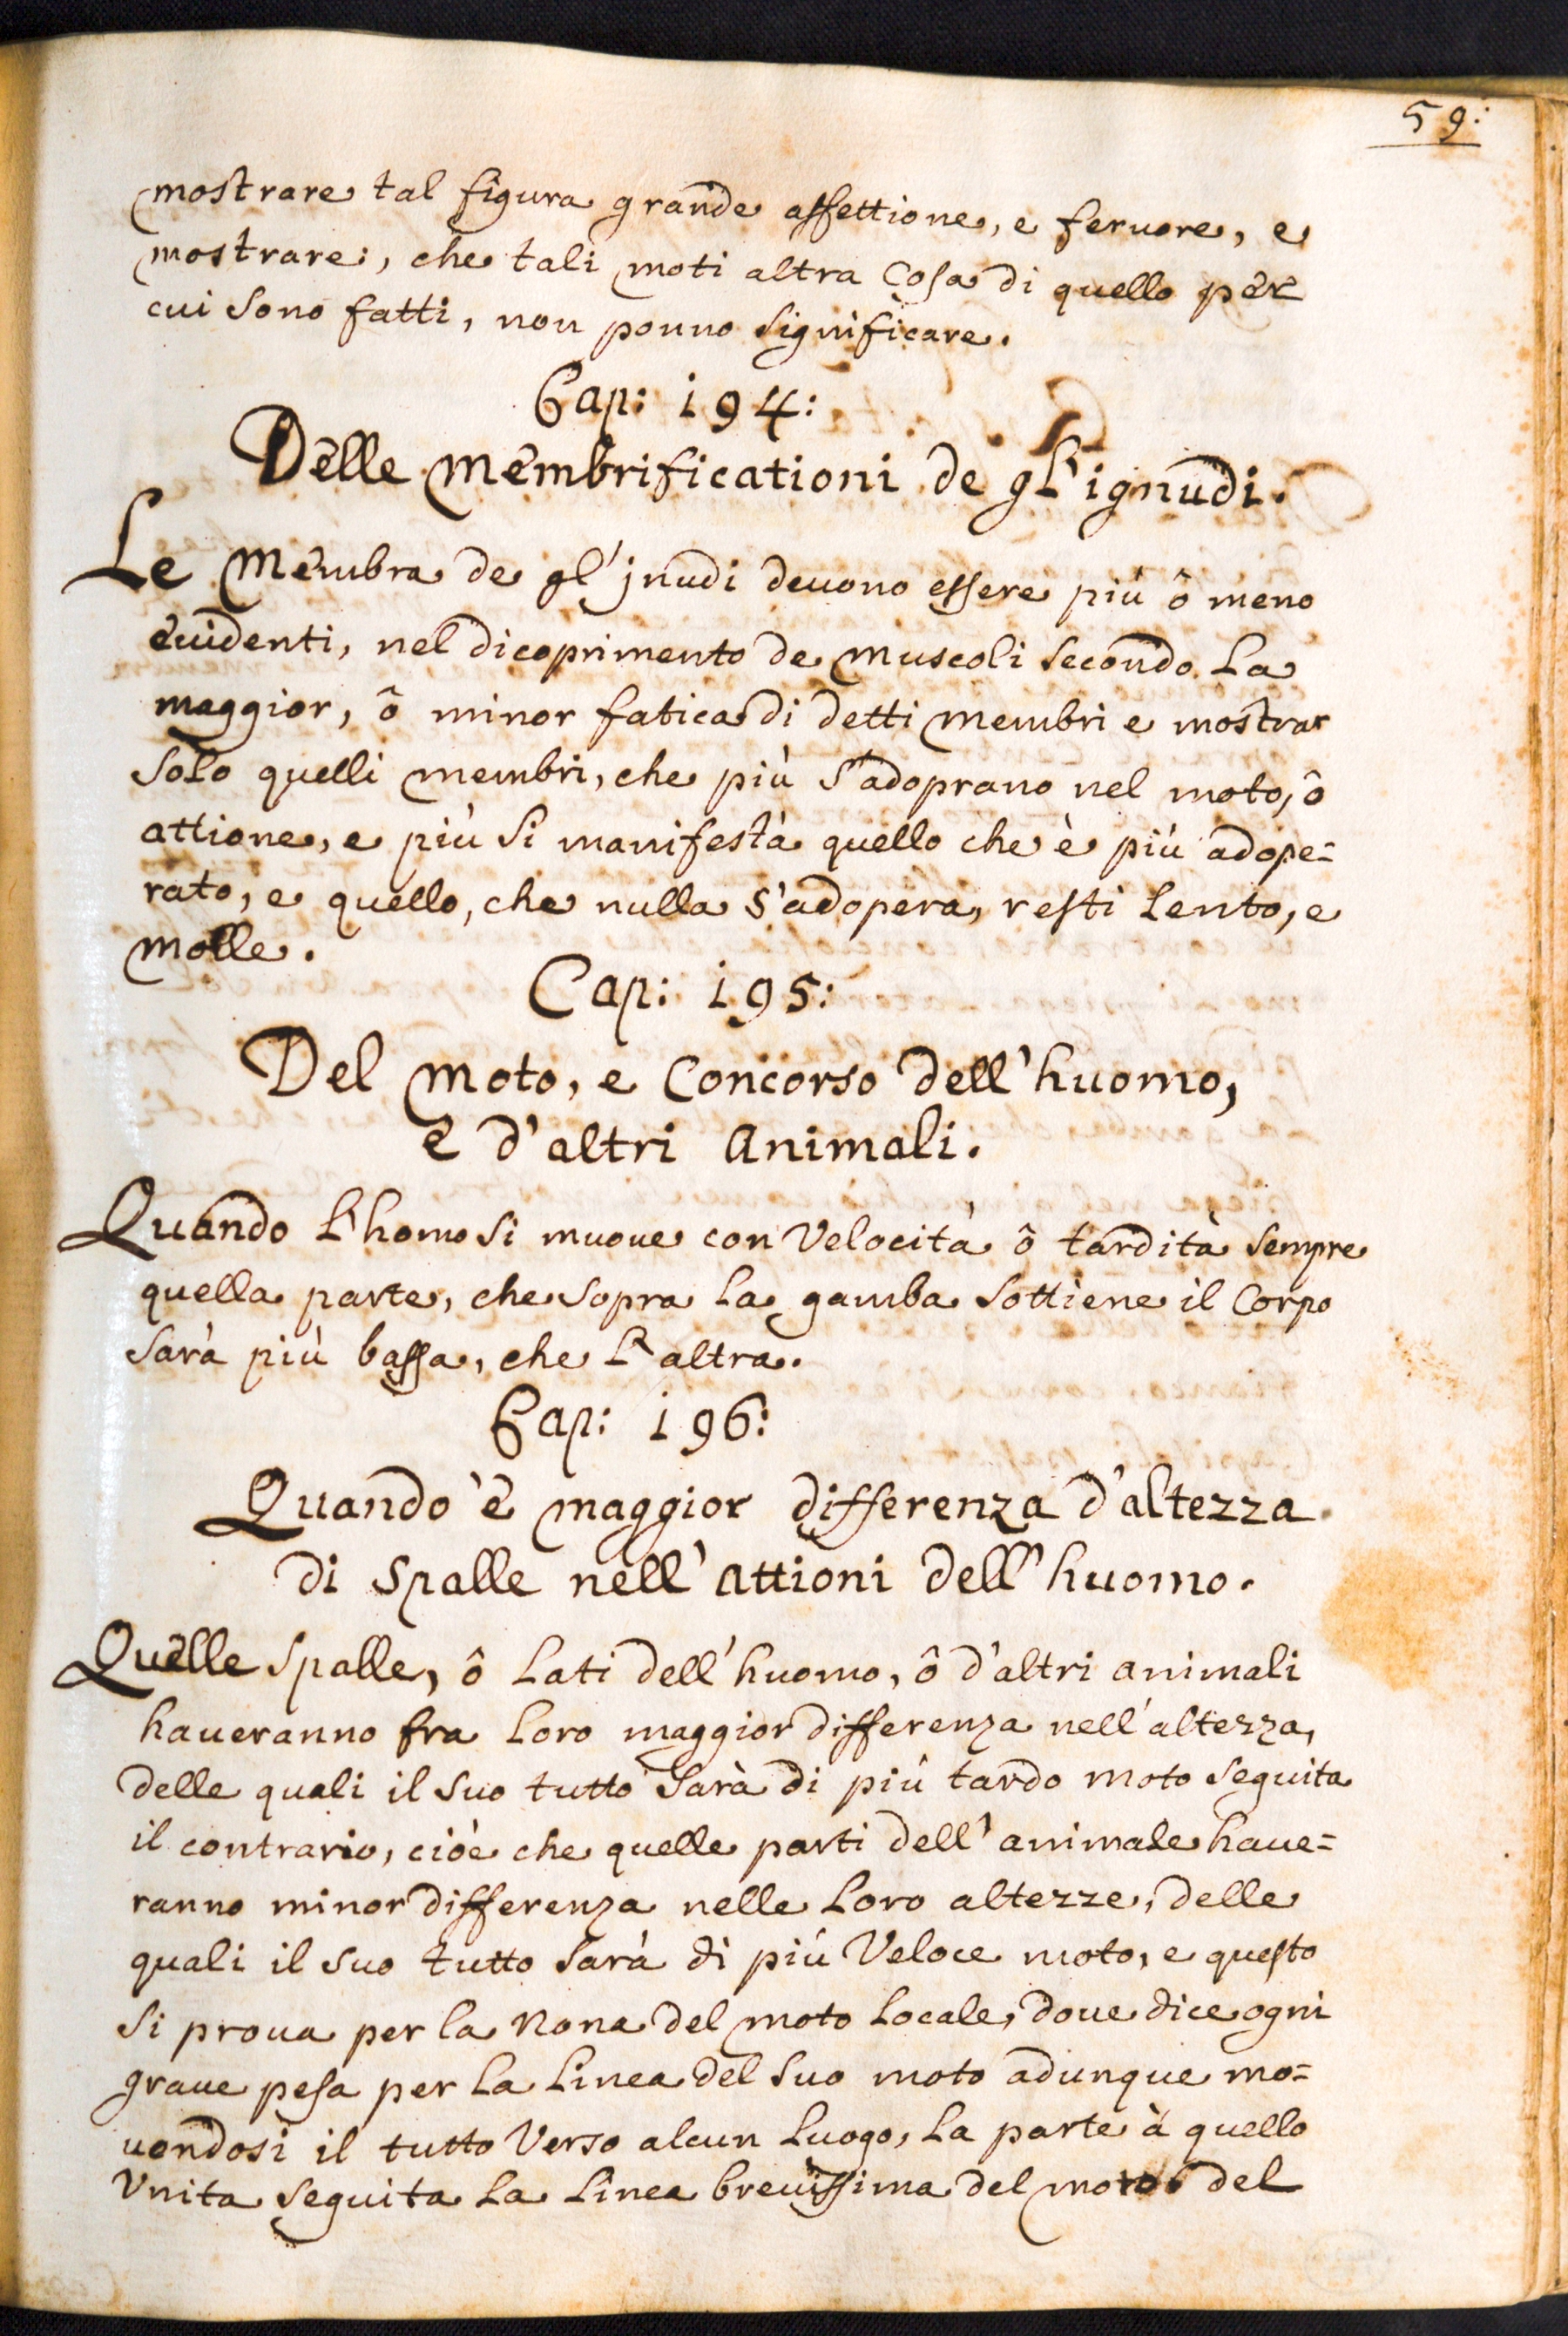 59:
mostrare tal figura grande affettione, e feruore, e
mostrare, che tali moti altra Cosa di quello per
cui sono fatti, non ponno significare.
Cap: 194:
Delle membrificationi de gl'ignudi.
Le Membra de gl'jnudi deuono essere più ô meno
euidenti, nel dicoprimento de muscoli secondo la
maggior, ô minor fatica di detti membri e mostrar
solo quelli membri, che più s'adoprano nel moto, ô
attione, e più si manifestà quello che è più adope=
rato, e quello, che nulla s'adopera, resti lento, e
molle.
Cap: 195:
Del moto, e Concorso dell'huomo,
e d'altri animali.
Quando l'homo si muoue con Velocità ô tardità sempre
quella parte, che sopra la gamba sottiene il Corpo
sarà più bassa, che l'altra.
Cap: 196:
Quando è maggior differenza d'altezza
di spalle nell'attioni dell'huomo.
Quelle spalle, ô lati dell'huomo, ô d'altri animali
haueranno fra loro maggior differenza nell'altezza,
delle quali il suo tutto sarà di più tardo moto seguita
il contrario, cioè che quelle parti dell'animale haue=
ranno minor differenza nelle loro altezze, delle
quali il suo tutto sarà di più Veloce moto, e questo
si proua per la nona del moto locale, doue dice ogni
graue pesa per la linea del suo moto adunque mo=
uendosi il tutto Verso alcun luogo, la parte à quello
Vnita seguita la linea breuissima del moto del